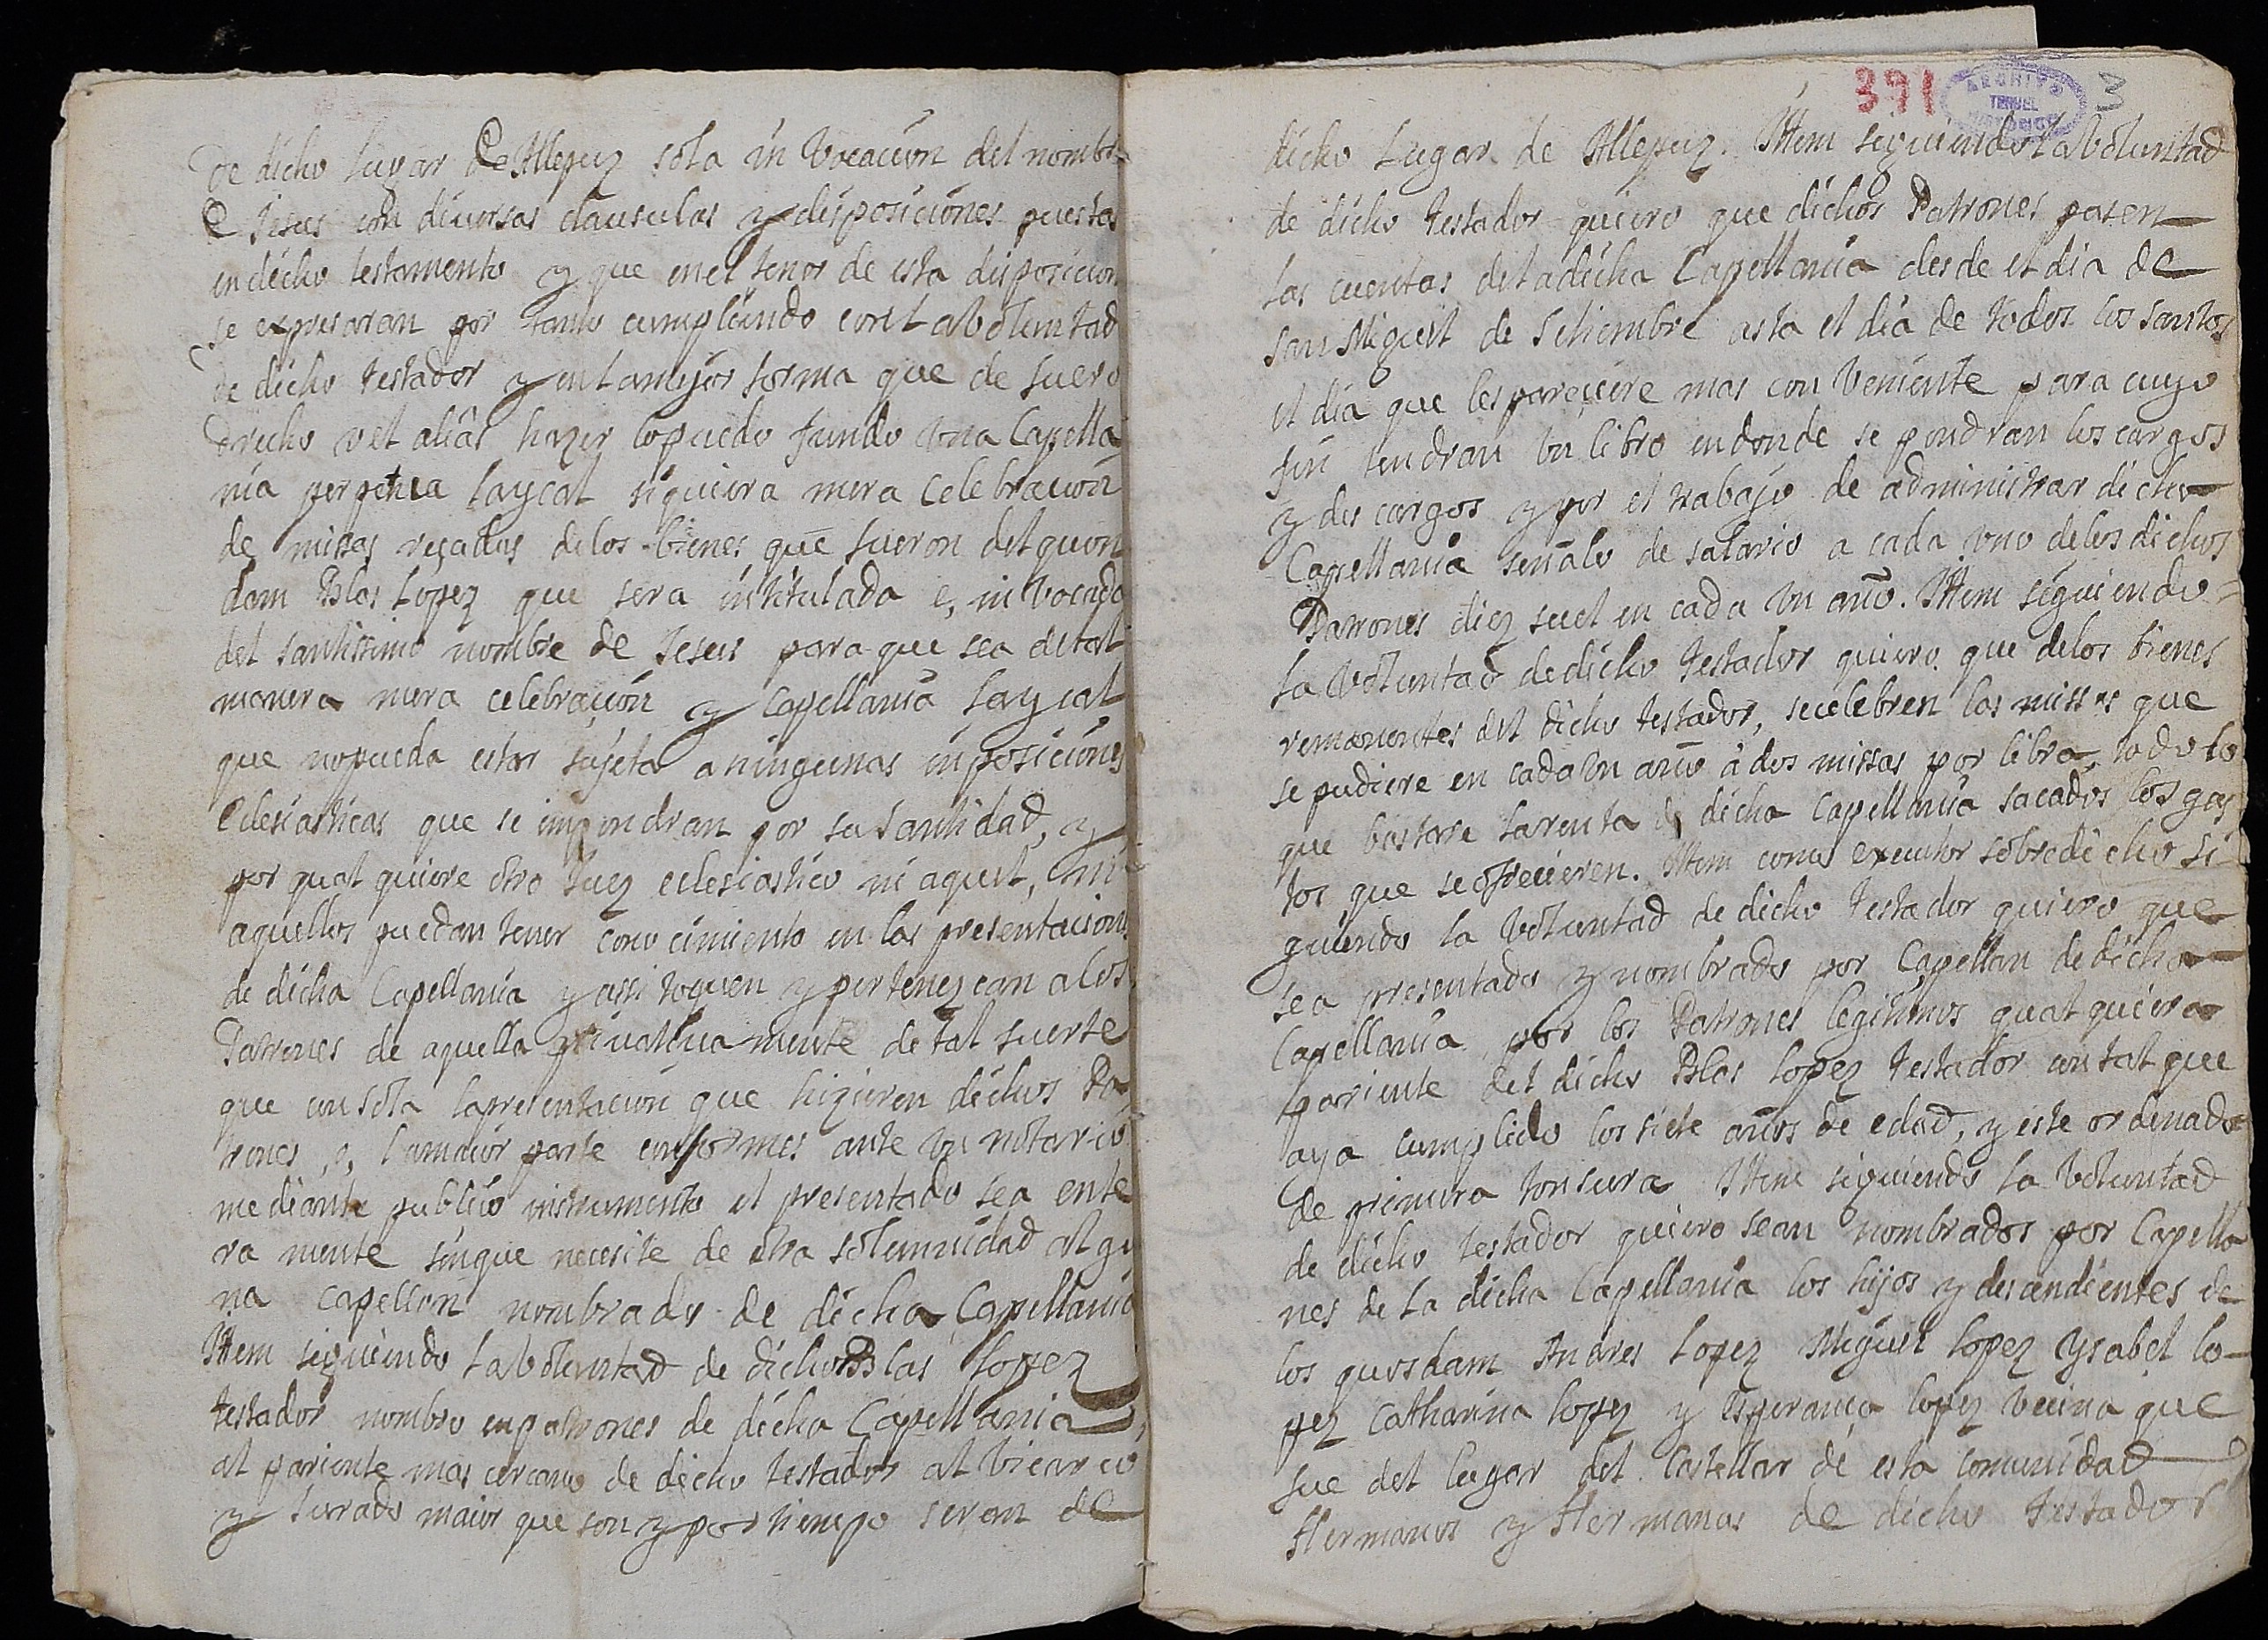 de dicho lugar de Allepuz sola in Vocacion del nombre
e Jesus con diversas clausulas y disposiciones puestas
en dicho testamento y que en el tenor de esta disposicion
se expresaran por tanto cumpliendo con la Voluntad
de dicho testador y en la mejor forma que de fuero
drecho vel alias hazer lo puedo fundo una Capella
nia perpetua laycal siquiera mera Celebracion
de missas reçadas de los bienes que fueron del quon
dam Blas Lopez que sera intitulada e, in Vocada
del santissimo nombre de Jesus para que sea de tal
manera mera celebraçion y Capellania laycal
que no pueda estar sujeta a ningunas inposiciones
Eclesiasticas que se impondran por su Santidad, y
por qual quiere otro Juez eclesiastico ni aquel, ni
aquellos puedan tener cono cimiento en las presentacions
de dicha Capellania y assi toquen y pertenezcan a los
Patrones de aquella privativa mente de tal suerte
que con sola la presentacion que hizieren dichos Pa
trones, o, la maior parte conformes ante un notario
mediante publico instrumento el presentado sea ente
ra mente sin que necesite de otra solemnidad algu
na capellan nombrado de dicha Capellania
Ittem siguiendo la Voluntad de dicho Blas Lopez
testador nombro en patrones de dicha Capellania,
al pariente mas cercano de dicho testador al Vicario
y Jurado maior que son y por tiempo seran de
391
ARCHIVO
TERUEL
HISTORICO
3
dicho Lugar de Allepuz. Ittem siguiendo la Voluntad
de dicho testador quiero que dichos Patrones pasen
las cuentas de la dicha Capellania desde el dia de
san Miguel de Setiembre asta el dia de todos los santos
el dia que les pareciere mas con Veniente para cuyo
fin tendran un libro en donde se pondran los cargos
y des cargos y por el trabajo de administrar dicha
Capellania señalo de salario a cada uno de los dichos
Patrones diez suel en cada un año. Ittem siguiendo
la Voluntad de dicho testador quiero que de los bienes
remanentes del dicho testador, se celebren las missas que
se pudiere en cada un año a dos missas por libra, todo lo
que bastare la renta de dicha Capellania sacados los gas
tos que se ofrecieren. Ittem como executor sobredicho si
guiendo la Voluntad de dicho testador quiero que
sea presentado y nombrado por Capellan de dicha
Capellania por los Patrones legitimos qualquiera
pariente del dicho Blas Lopez testador con tal que
aya cumplido los siete años de edad, y este ordenado
de primera tonsura Ittem siguiendo la Voluntad
de dicho testador quiero sean nombrados por Capella
nes de la dicha Capellania los hijos y descendientes de
los quosdam Andres Lopez Miguel Lopez Ysabel Lo-
pez Catharina Lopez y Esperança Lopez vecina que
fue del lugar del Castellar de esta comunidad
Hermanos y Hermanas de dicho testador